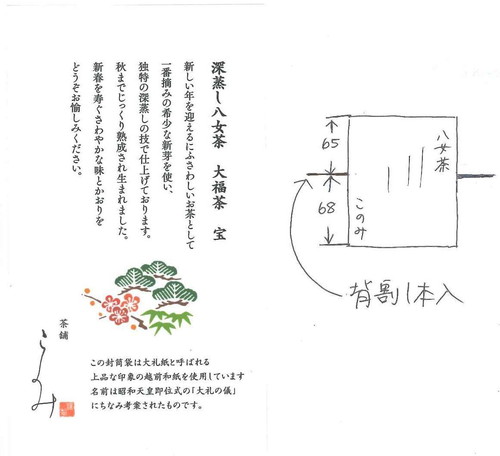 深蒸し八女茶　大福茶　宝
新しい年を迎えるにふさわしいお茶として
一番摘みの希少な新芽を使い、
独特の深蒸しの技で仕上げております。
秋までじっくり熟成され生まれました。
新春を寿ぐさわやかな味とかおりを
どうぞお愉しみください。
茶舗
このみ
この封筒袋は大礼紙と呼ばれる
上品な印象の越前和紙を使用しています
名前は昭和天皇即位式の「大礼の儀」
にちなみ考案されたものです。
65
68
八女茶
このみ
背割1本入